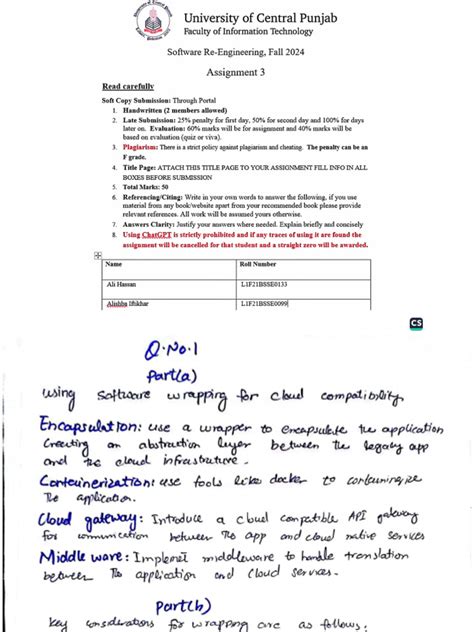 University of Central Punjab
Faculty of Information Technology
Software Re-Engineering, Fall 2024
Assignment 3
Read carefully
Soft Copy Submission: Through Portal
1. Handwritten (2 members allowed)
2. Late Submission: 25% penalty for first day, 50% for second day and 100% for days
later on. Evaluation: 60% marks will be for assignment and 40% marks will be
based on evaluation (quiz or viva).
3. Plagiarism: There is a strict policy against plagiarism and cheating. The penalty can be an
F grade.
4. Title Page: ATTACH THIS TITLE PAGE TO YOUR ASSIGNMENT FILL INFO IN ALL
BOXES BEFORE SUBMISSION
5. Total Marks: 50
6. Referencing/Citing: Write in your own words to answer the following, if you use
material from any book/website apart from your recommended book please provide
relevant references. All work will be assumed yours otherwise.
7. Answers Clarity: Justify your answers where needed. Explain briefly and concisely
8. Using ChatGPT is strictly prohibited and if any traces of using it are found the
assignment will be cancelled for that student and a straight zero will be awarded.
Name Roll Number
Ali Hassan L1F21BSSE0133
Alishba Iftikhar L1F21BSSE0099
CS
Q.No.1
Part(a)
Using software wrapping for cloud compatibility
Encapsulation: use a wrapper to encapsulate the application
Creating an abstraction layer between the legacy app
and the cloud infrastructure.
Containerization: use tools like docker to containerize
The application.
Cloud gateway: Introduce a cloud compatible API gateway
for communication between the app and cloud native services
Middle ware: Implemet middleware to handle translation
between The application and cloud services.
Part(b)
Key considerations for wrapping are as follows: